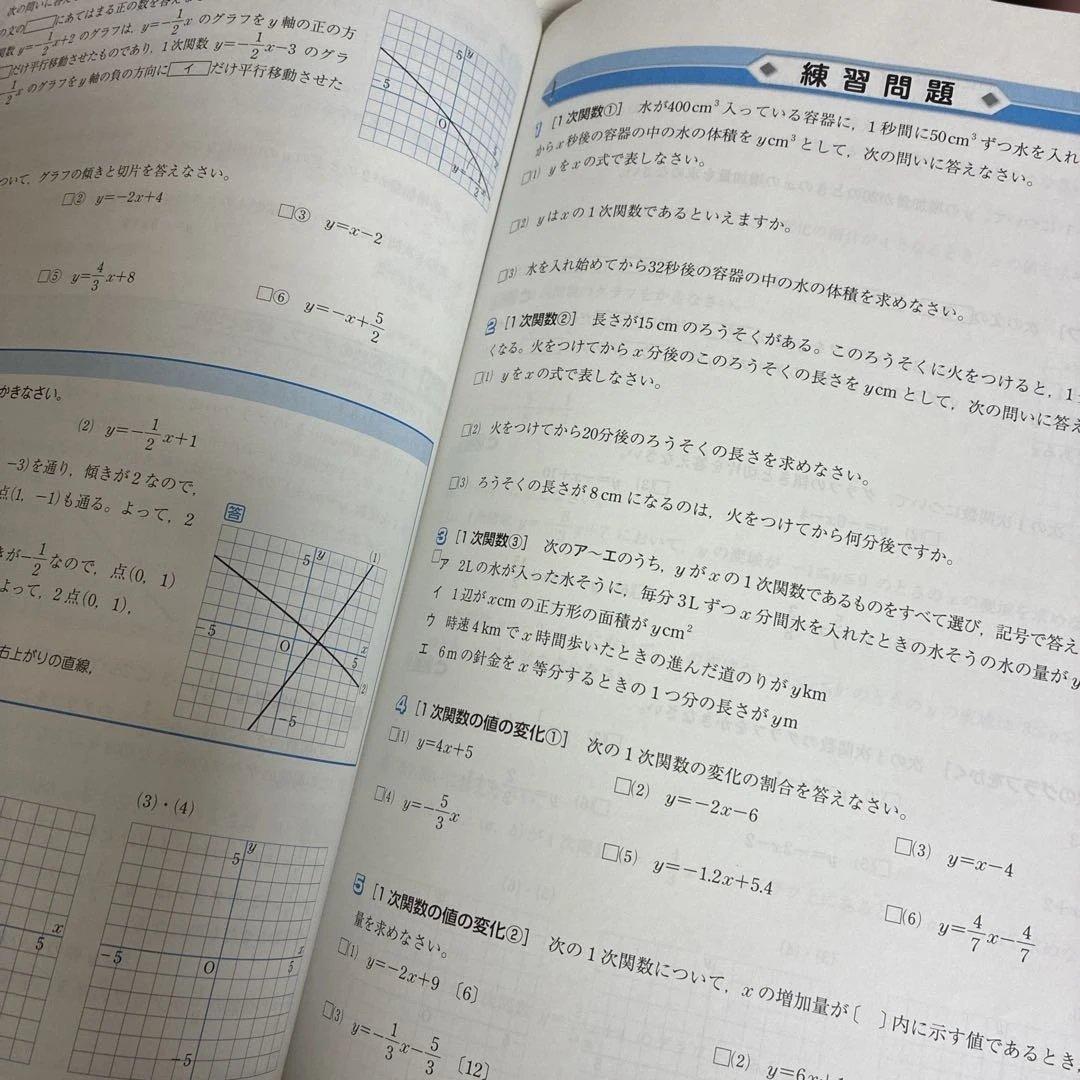 次の問いに答え
の文の□にあてはまる正の数を答えな
関数 y=-1/2x+2 のグラフは, y=-1/2x のグラフを y 軸の正の方
だけ平行移動させたものであり, 1次関数 y=-1/2x-3 のグラ
1/2x のグラフを y 軸の負の方向に イ だけ平行移動させた
5
y
-5
O
ついて, グラフの傾きと切片を答えなさい。
□② y=-2x+4
□③ y=x-2
□⑤ y=4/3x+8
□⑥ y=-x+5/2
かきなさい。
(2) y=-1/2x+1
-3)を通り, 傾きが2なので,
点(1, -1)も通る。よって, 2
きが-1/2なので, 点(0, 1)
よって, 2点(0, 1),
右上がりの直線,
答
5
y
(1)
-5
O
5
x
(2)
-5
(3)・(4)
x
5
5
y
-5
O
5
x
-5
練習問題
1 [1次関数①] 水が400cm³入っている容器に, 1秒間に50cm³ずつ水を入れ
からx秒後の容器の中の水の体積をycm³として, 次の問いに答えなさい。
□(1) yをxの式で表しなさい。
□(2) yはxの1次関数であるといえますか。
□(3) 水を入れ始めてから32秒後の容器の中の水の体積を求めなさい。
2 [1次関数②] 長さが15cmのろうそくがある。このろうそくに火をつけると, 1
くなる。火をつけてからx分後のこのろうそくの長さをycmとして, 次の問いに答
□(1) yをxの式で表しなさい。
□(2) 火をつけてから20分後のろうそくの長さを求めなさい。
□(3) ろうそくの長さが8cmになるのは, 火をつけてから何分後ですか。
3 [1次関数③] 次のア〜エのうち, yがxの1次関数であるものをすべて選び, 記号で答え
□ア 2Lの水が入った水そうに, 毎分3Lずつx分間水を入れたときの水そうの水の量がy
イ 1辺がxcmの正方形の面積がycm²
ウ 時速4kmでx時間歩いたときの進んだ道のりがykm
エ 6mの針金をx等分するときの1つ分の長さがym
4 [1次関数の値の変化①] 次の1次関数の変化の割合を答えなさい。
□(1) y=4x+5
□(2) y=-2x-6
□(3) y=x-4
□(4) y=-5/3x
□(5) y=-1.2x+5.4
□(6) y=4/7x-4/7
5 [1次関数の値の変化②] 次の1次関数について, xの増加量が〔 〕内に示す値であるとき,
量を求めなさい。
□(1) y=-2x+9 〔6〕
□(2) y=6x+
□(3) y=-1/3x-5/3 〔12〕